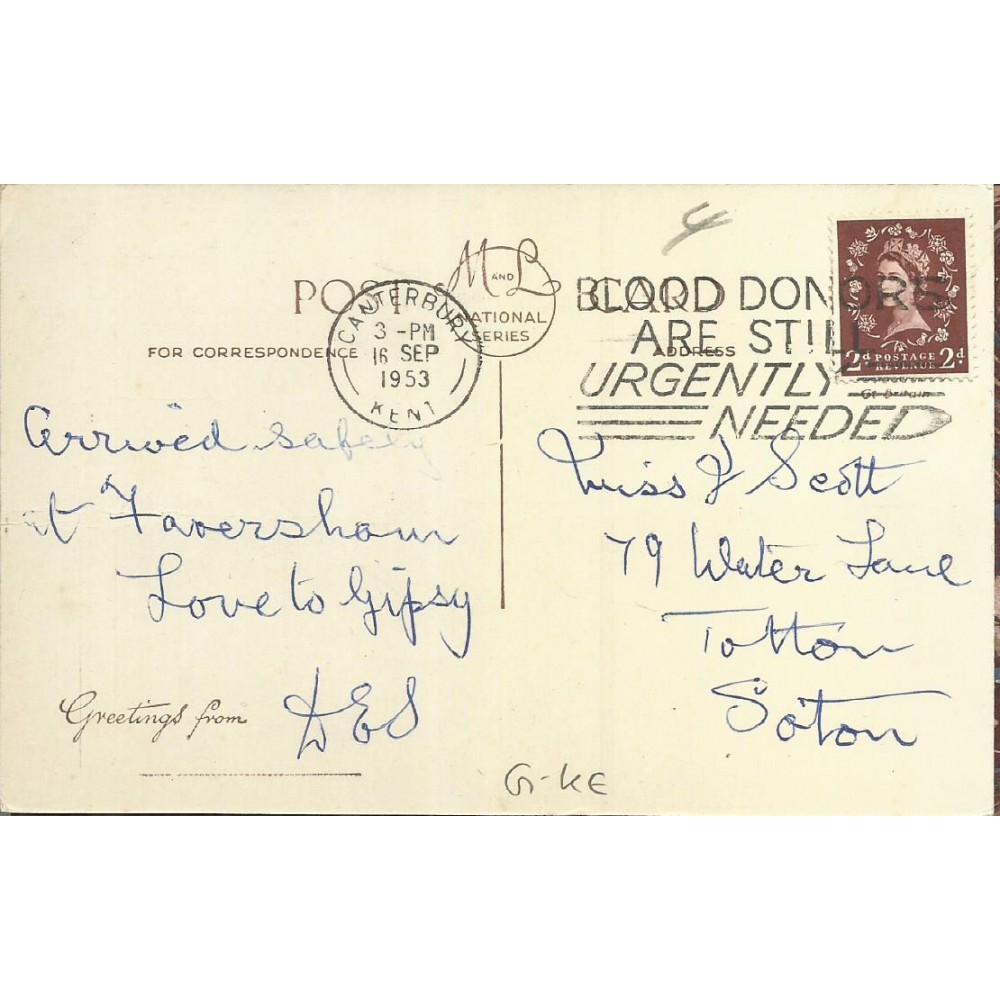 4
POST CARD
M AND L
NATIONAL
SERIES
FOR CORRESPONDENCE
ADDRESS
CANTERBURY
3 - PM
16 SEP
1953
KENT
BLOOD DONORS
ARE STILL
URGENTLY
NEEDED
2d POSTAGE REVENUE 2d
Gt Britain
Arrived safely
at Faversham
Love to Gipsy
DES
Greetings from
Miss J Scott
79 Water Lane
Totton
So'ton
G-KE